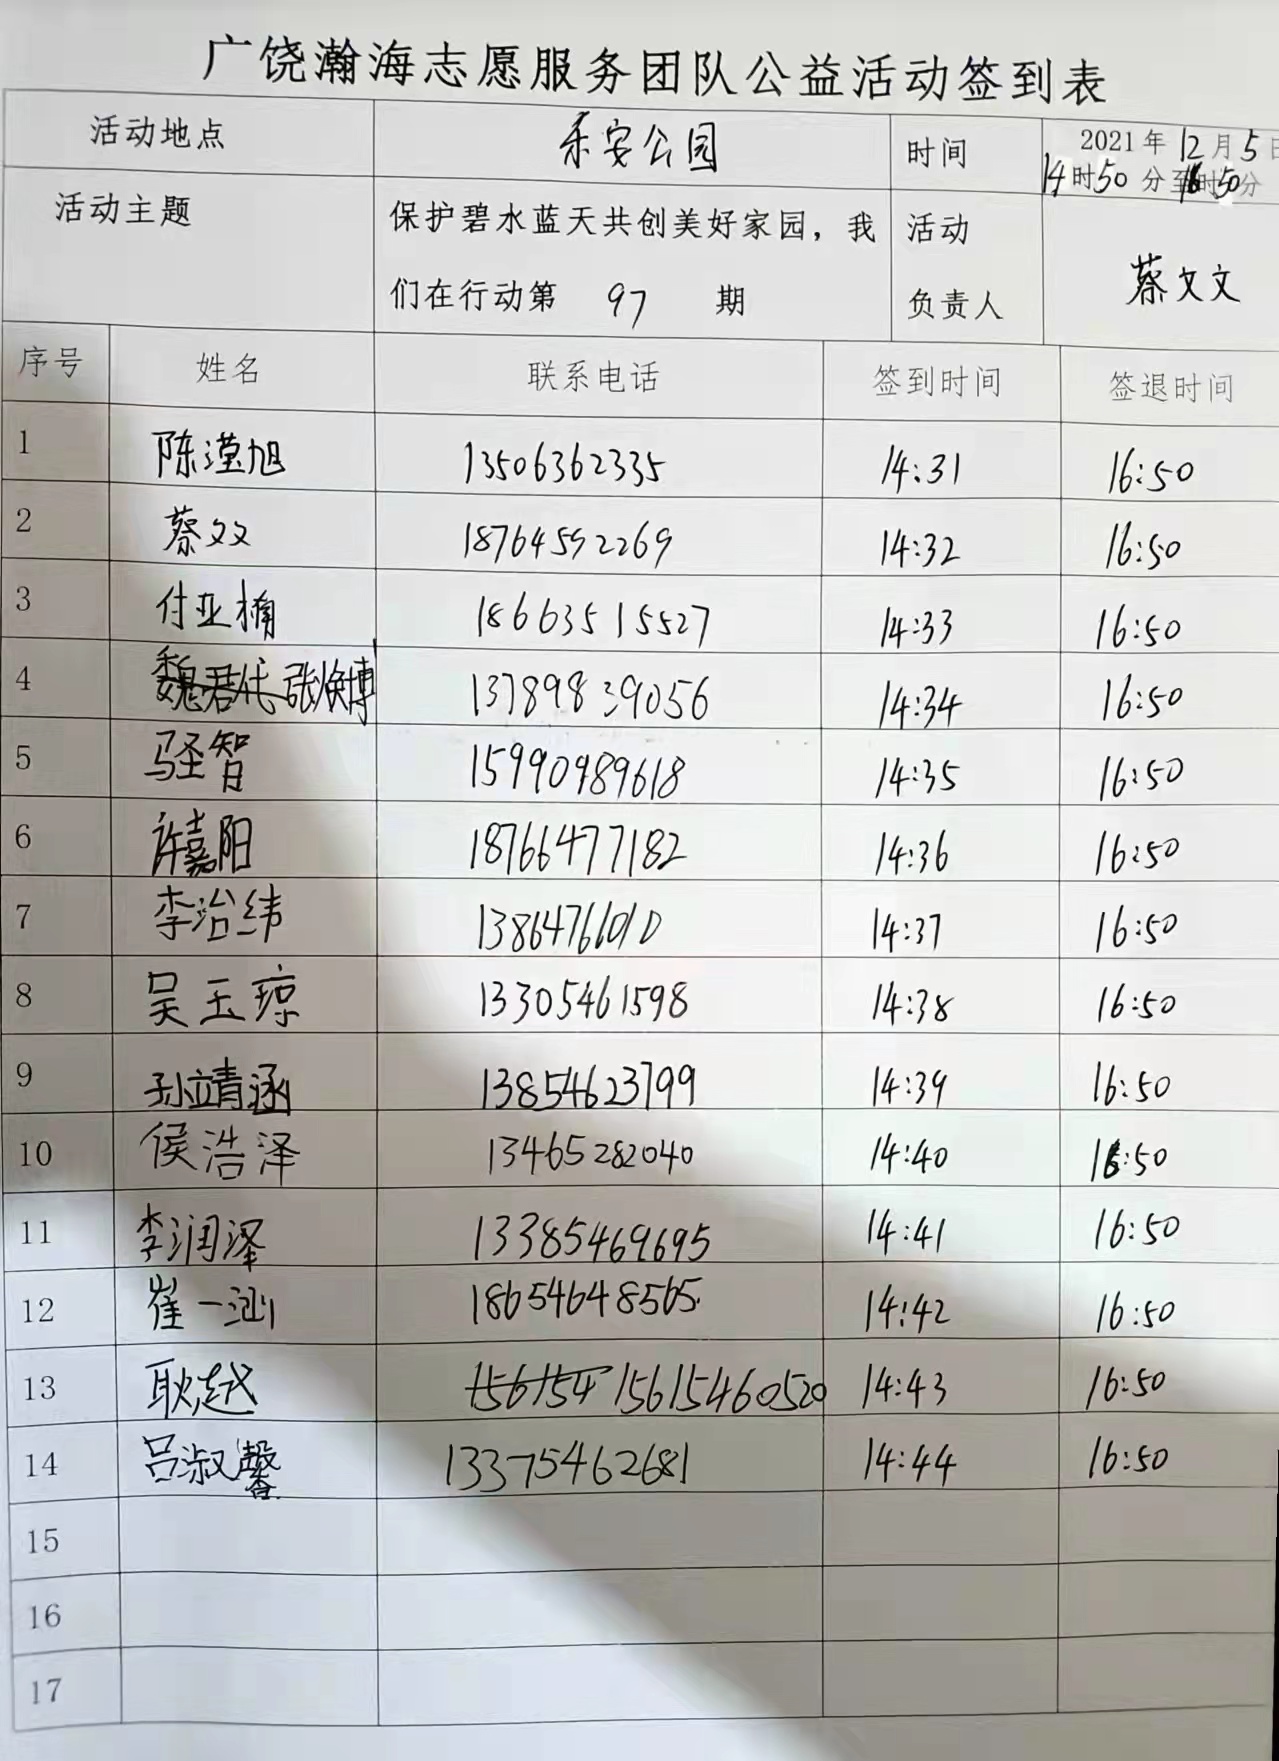 广饶瀚海志愿服务团队公益活动签到表
活动地点 乐安公园 时间 2021年12月5日
14时50分至16时50分
活动主题 保护碧水蓝天共创美好家园，我 活动
们在行动第 97 期 负责人 蔡文文
序号 姓名 联系电话 签到时间 签退时间
1 陈滢旭 13506362335 14:31 16:50
2 蔡文文 18764592269 14:32 16:50
3 付亚楠 18663515527 14:33 16:50
4 张焕博 13789839056 14:34 16:50
5 智 15990989618 14:35 16:50
6 许嘉阳 18766477182 14:36 16:50
7 李治纬 13864766010 14:37 16:50
8 吴玉琼 13305461598 14:38 16:50
9 孙靖涵 13854623799 14:39 16:50
10 侯浩泽 13465282040 14:40 16:50
11 李润泽 13385469695 14:41 16:50
12 崔一汕 18654648565 14:42 16:50
13 耿越 15615460520 14:43 16:50
14 吕淑馨 13375462681 14:44 16:50
15
16
17